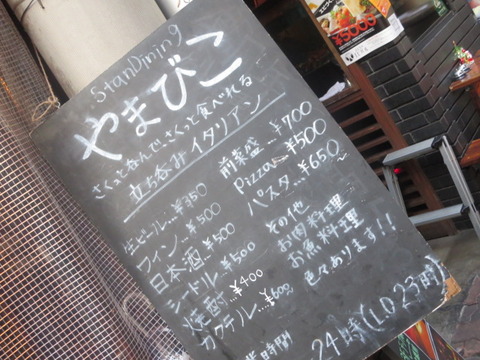 StanDining
やまびこ
さくっと呑んで…さくっと食べれる
立ち呑みイタリアン
生ビール…¥350
ワイン…¥500
日本酒…¥500
シードル…¥500
焼酎…¥400
カクテル…¥600
前菜盛…¥700
Pizza…¥500
パスタ…¥650〜
その他
お肉料理
お魚料理
色々あります!!
業時間
24時(LO23時)
¥3000